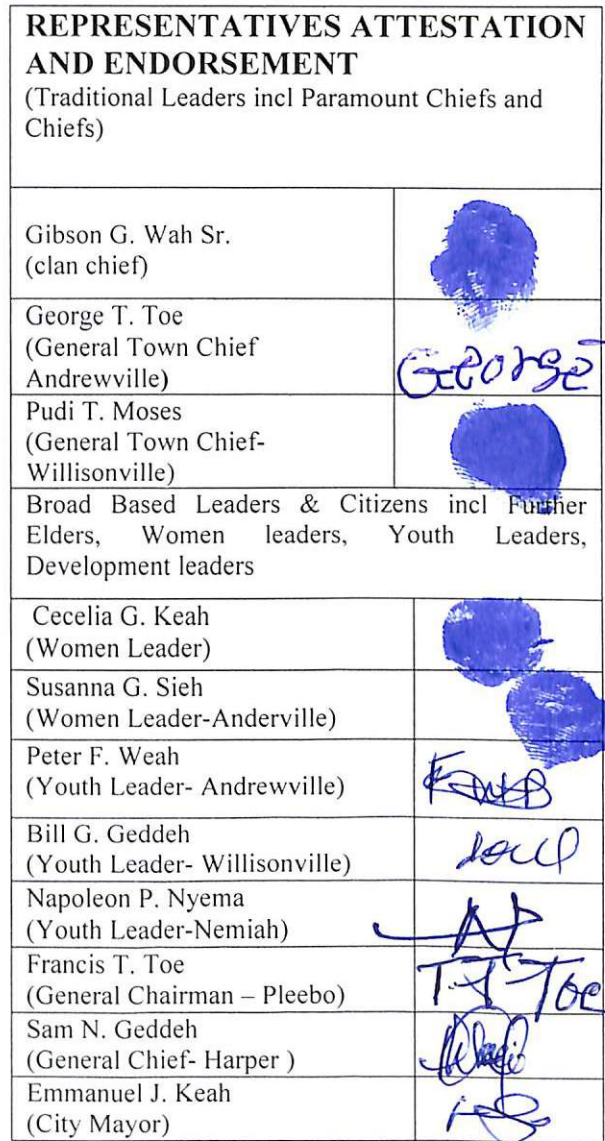 REPRESENTATIVES ATTESTATION
AND ENDORSEMENT
(Traditional Leaders incl Paramount Chiefs and
Chiefs)
Gibson G. Wah Sr.
(clan chief)
George T. Toe
(General Town Chief
Andrewville)
George
Pudi T. Moses
(General Town Chief-
Willisonville)
Broad Based Leaders & Citizens incl Further
Elders, Women leaders, Youth Leaders,
Development leaders
Cecelia G. Keah
(Women Leader)
Susanna G. Sieh
(Women Leader-Anderville)
Peter F. Weah
(Youth Leader- Andrewville)
Bill G. Geddeh
(Youth Leader- Willisonville)
Napoleon P. Nyema
(Youth Leader-Nemiah)
Francis T. Toe
(General Chairman – Pleebo)
Toe
Sam N. Geddeh
(General Chief- Harper )
Emmanuel J. Keah
(City Mayor)